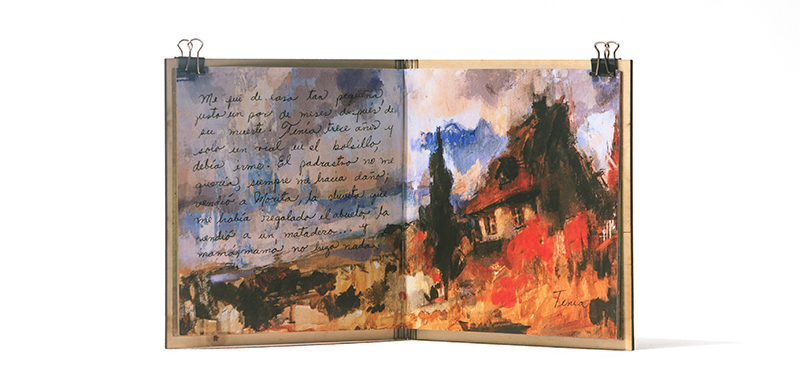 Me fui de casa tan pequeña
justo un par de meses después de
su muerte. Tenía trece anos y
solo un rial en el bolsillo,
debía irme. El padrastro no me
quería, siempre me hacia daño;
vendió a Monta, la
me había regalado el abuelo la
vendió a un matadero... y
mamá, mamá no hizo nada.
Tenía